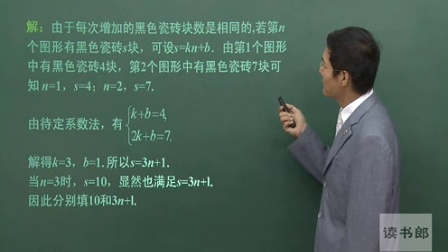 解：由于每次增加的黑色瓷砖块数是相同的,若第n
个图形有黑色瓷砖s块，可设s=kn+b. 由第1个图形
中有黑色瓷砖4块，第2个图形中有黑色瓷砖7块可
知 n=1，s=4；n=2，s=7.
由待定系数法，有{k+b=4,
2k+b=7.
解得k=3，b=1. 所以s=3n+1.
当n=3时，s=10，显然也满足s=3n+1.
因此分别填10和3n+1.
读书郎